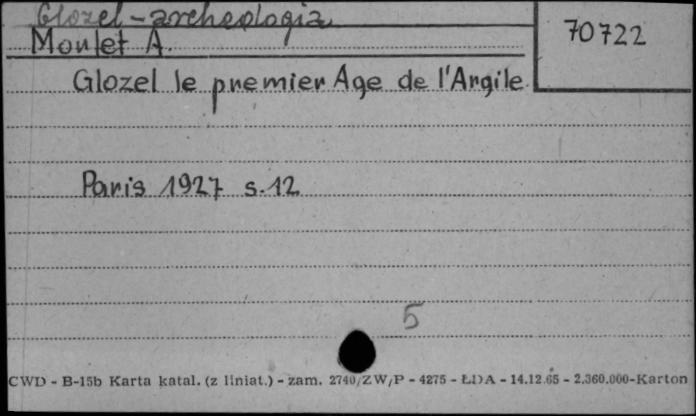 Glozel - archeologia
70722
Morlet A.
Glozel le premier Age de l'Argile
Paris 1927 s. 12
5
CWD - B-15b Karta katal. (z liniat.) - zam. 2740/ZW/P - 4275 - ŁDA - 14.12.65 - 2.360.000-Karton